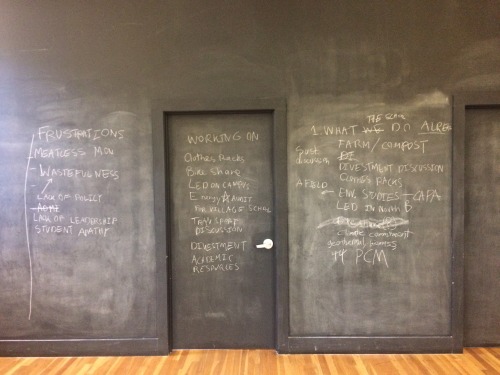 FRUSTRATIONS
MEATLESS MON
- WASTEFULNESS
LACK OF POLICY
LACK OF LEADERSHIP
STUDENT APATHY
WORKING ON
Clothes Racks
Bike Share
LED ON CAMPUS
Energy AUDIT
FOR VILLAGE SCHOOL
TRAY
DISCUSSION
DIVESTMENT
ACADEMIC
RESOURCES
1. WHAT WE DO ALREA
FARM / COMPOST
DIVESTMENT DISCUSSION
CLOTHES RACKS
ENV. STUDIES - CAPA
LED IN North D
climate commitment
geothermal
PCM